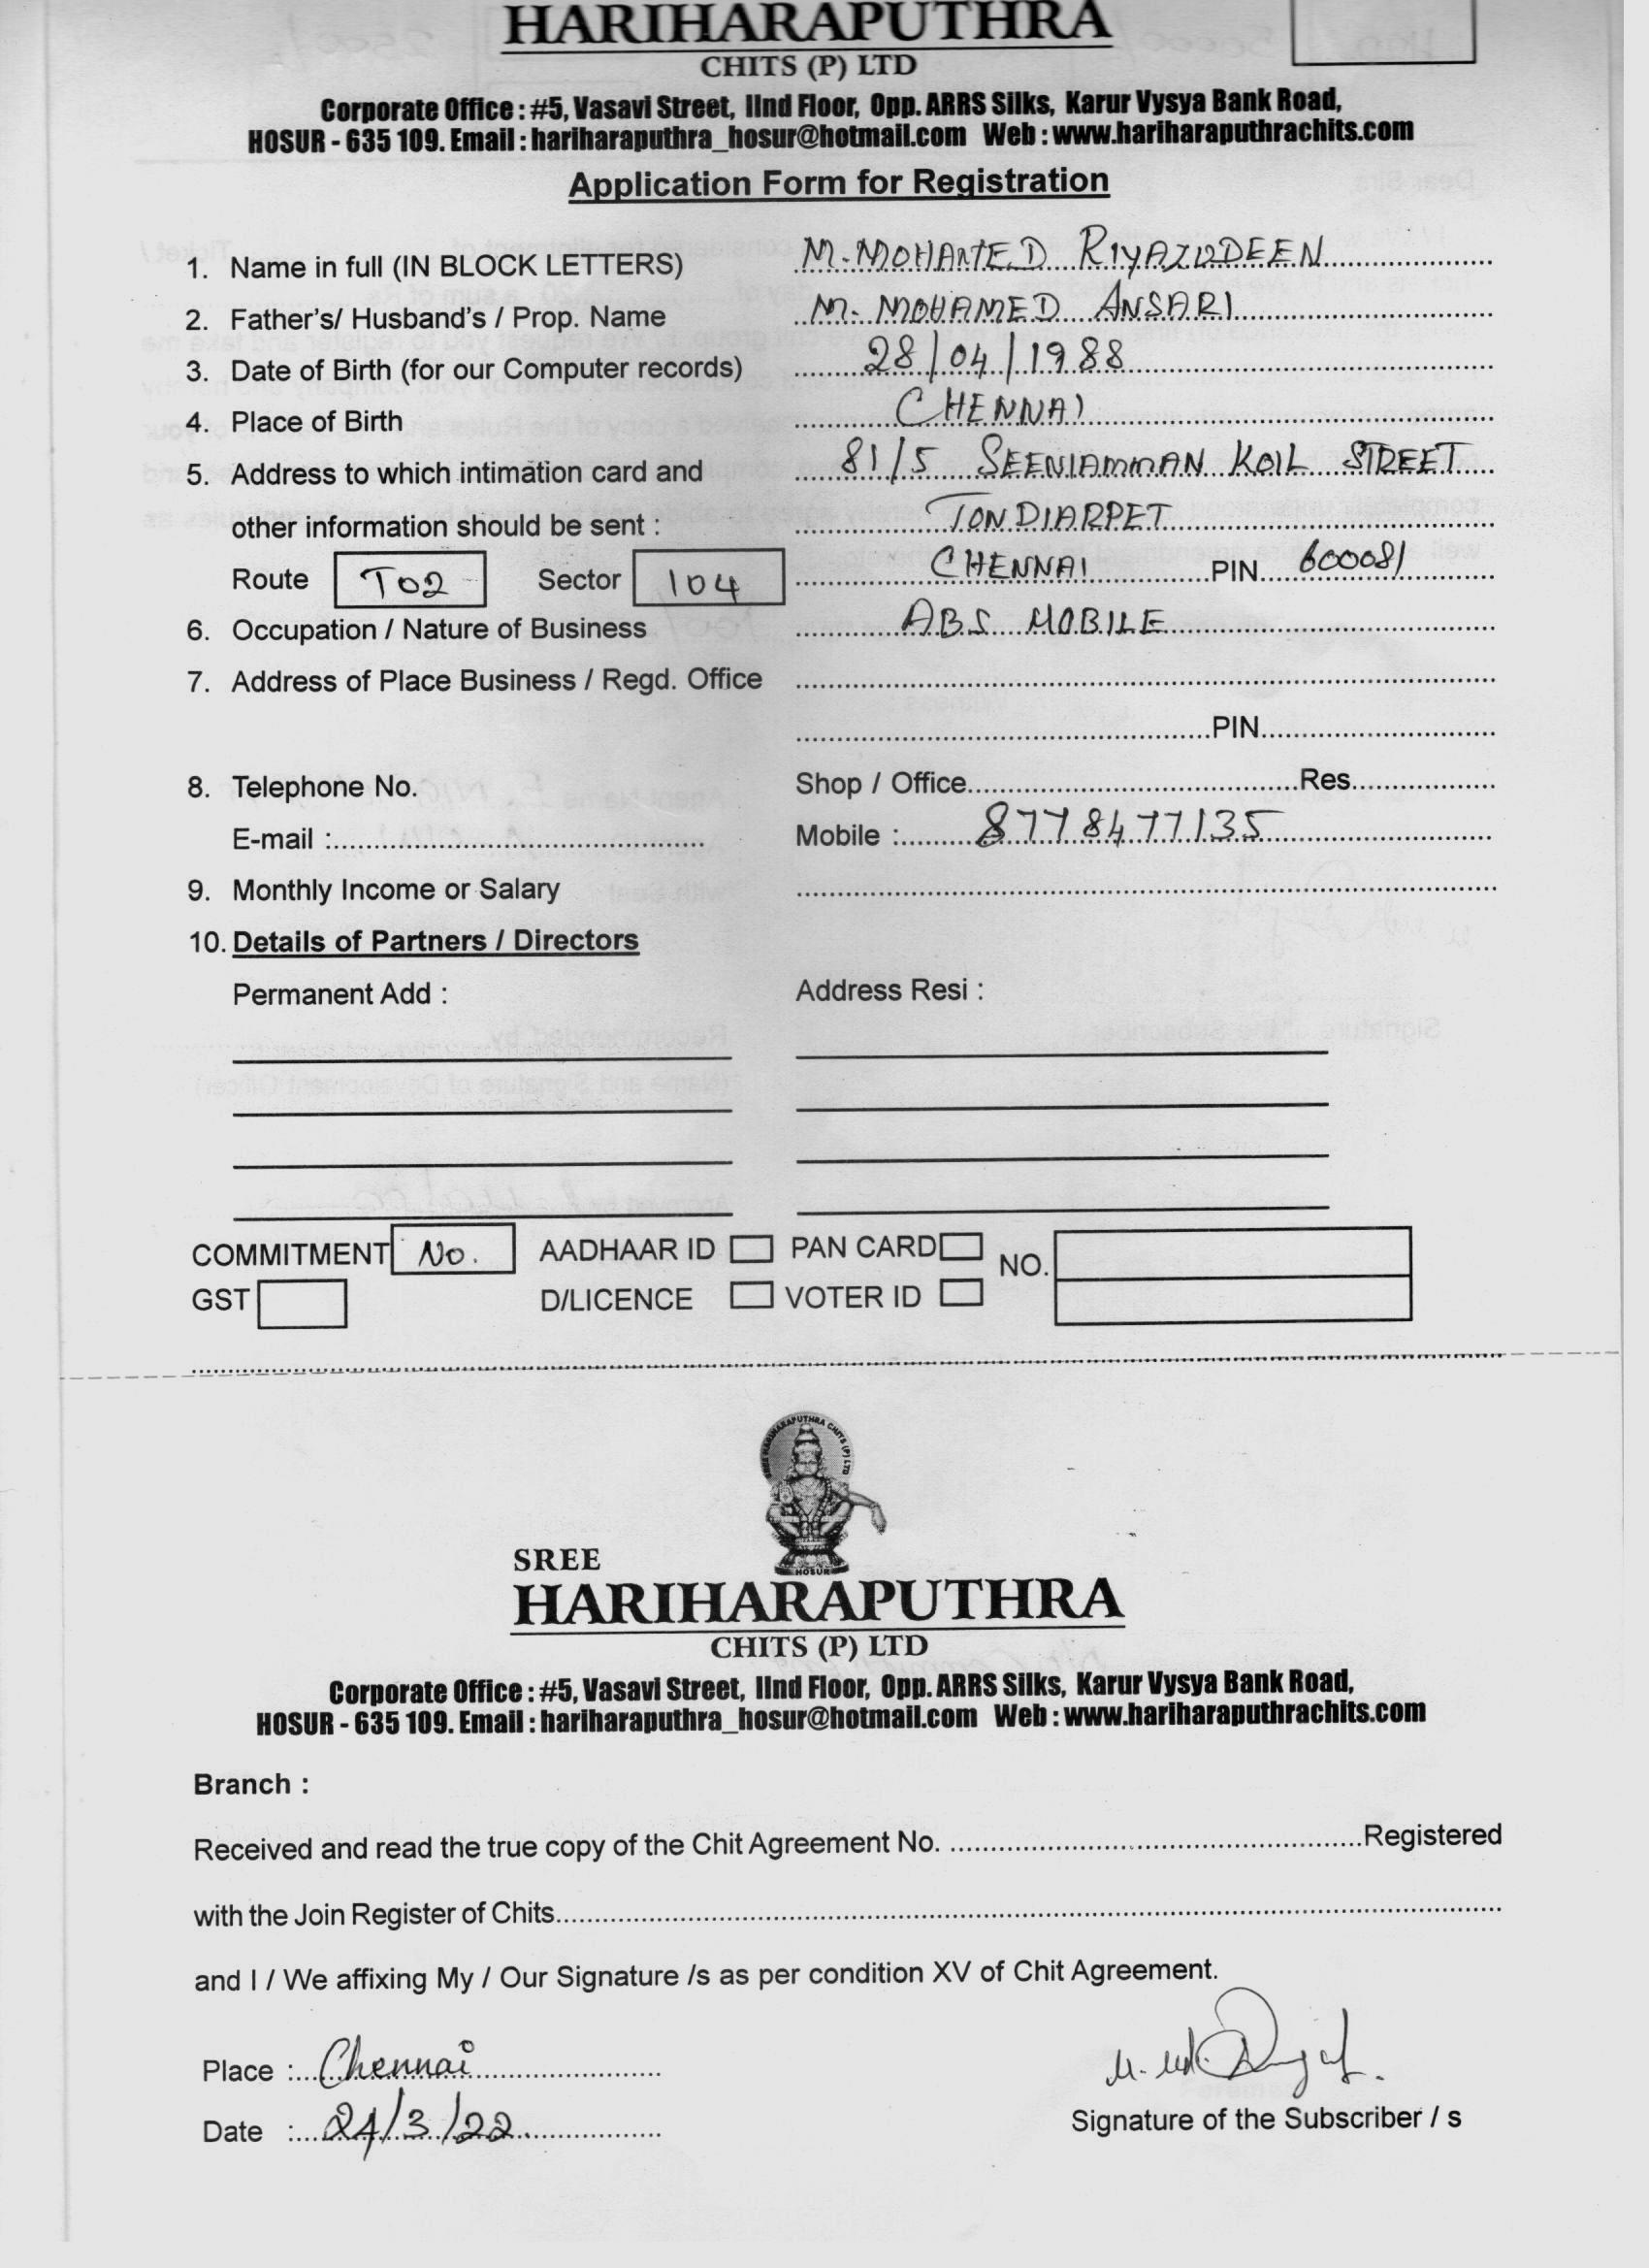 HARIHARAPUTHRA
CHITS (P) LTD
Corporate Office : #5, Vasavi Street, IInd Floor, Opp. ARRS Silks, Karur Vysya Bank Road,
HOSUR - 635 109. Email : hariharaputhra_hosur@hotmail.com Web : www.hariharaputhrachits.com
Application Form for Registration
1. Name in full (IN BLOCK LETTERS) M. MOHAMED RIYAZUDEEN
2. Father's/ Husband's / Prop. Name M. MOHAMED ANSARI
3. Date of Birth (for our Computer records) 28/04/1988
4. Place of Birth CHENNAI
5. Address to which intimation card and 81/5 SEENIAMMAN KOIL STREET
other information should be sent : TONDIARPET
Route T02 Sector 104 CHENNAI PIN 600081
6. Occupation / Nature of Business ABS MOBILE
7. Address of Place Business / Regd. Office
PIN
8. Telephone No. Shop / Office Res
E-mail : Mobile : 8778477135
9. Monthly Income or Salary
10. Details of Partners / Directors
Permanent Add : Address Resi :
COMMITMENT No. AADHAAR ID PAN CARD NO.
GST D/LICENCE VOTER ID
SREE HARIHARAPUTHRA CHITS (P) LTD
HOSUR
SREE
HARIHARAPUTHRA
CHITS (P) LTD
Corporate Office : #5, Vasavi Street, IInd Floor, Opp. ARRS Silks, Karur Vysya Bank Road,
HOSUR - 635 109. Email : hariharaputhra_hosur@hotmail.com Web : www.hariharaputhrachits.com
Branch :
Received and read the true copy of the Chit Agreement No. Registered
with the Join Register of Chits
and I / We affixing My / Our Signature /s as per condition XV of Chit Agreement.
Place : Chennai
Date : 24/3/22
Signature of the Subscriber / s